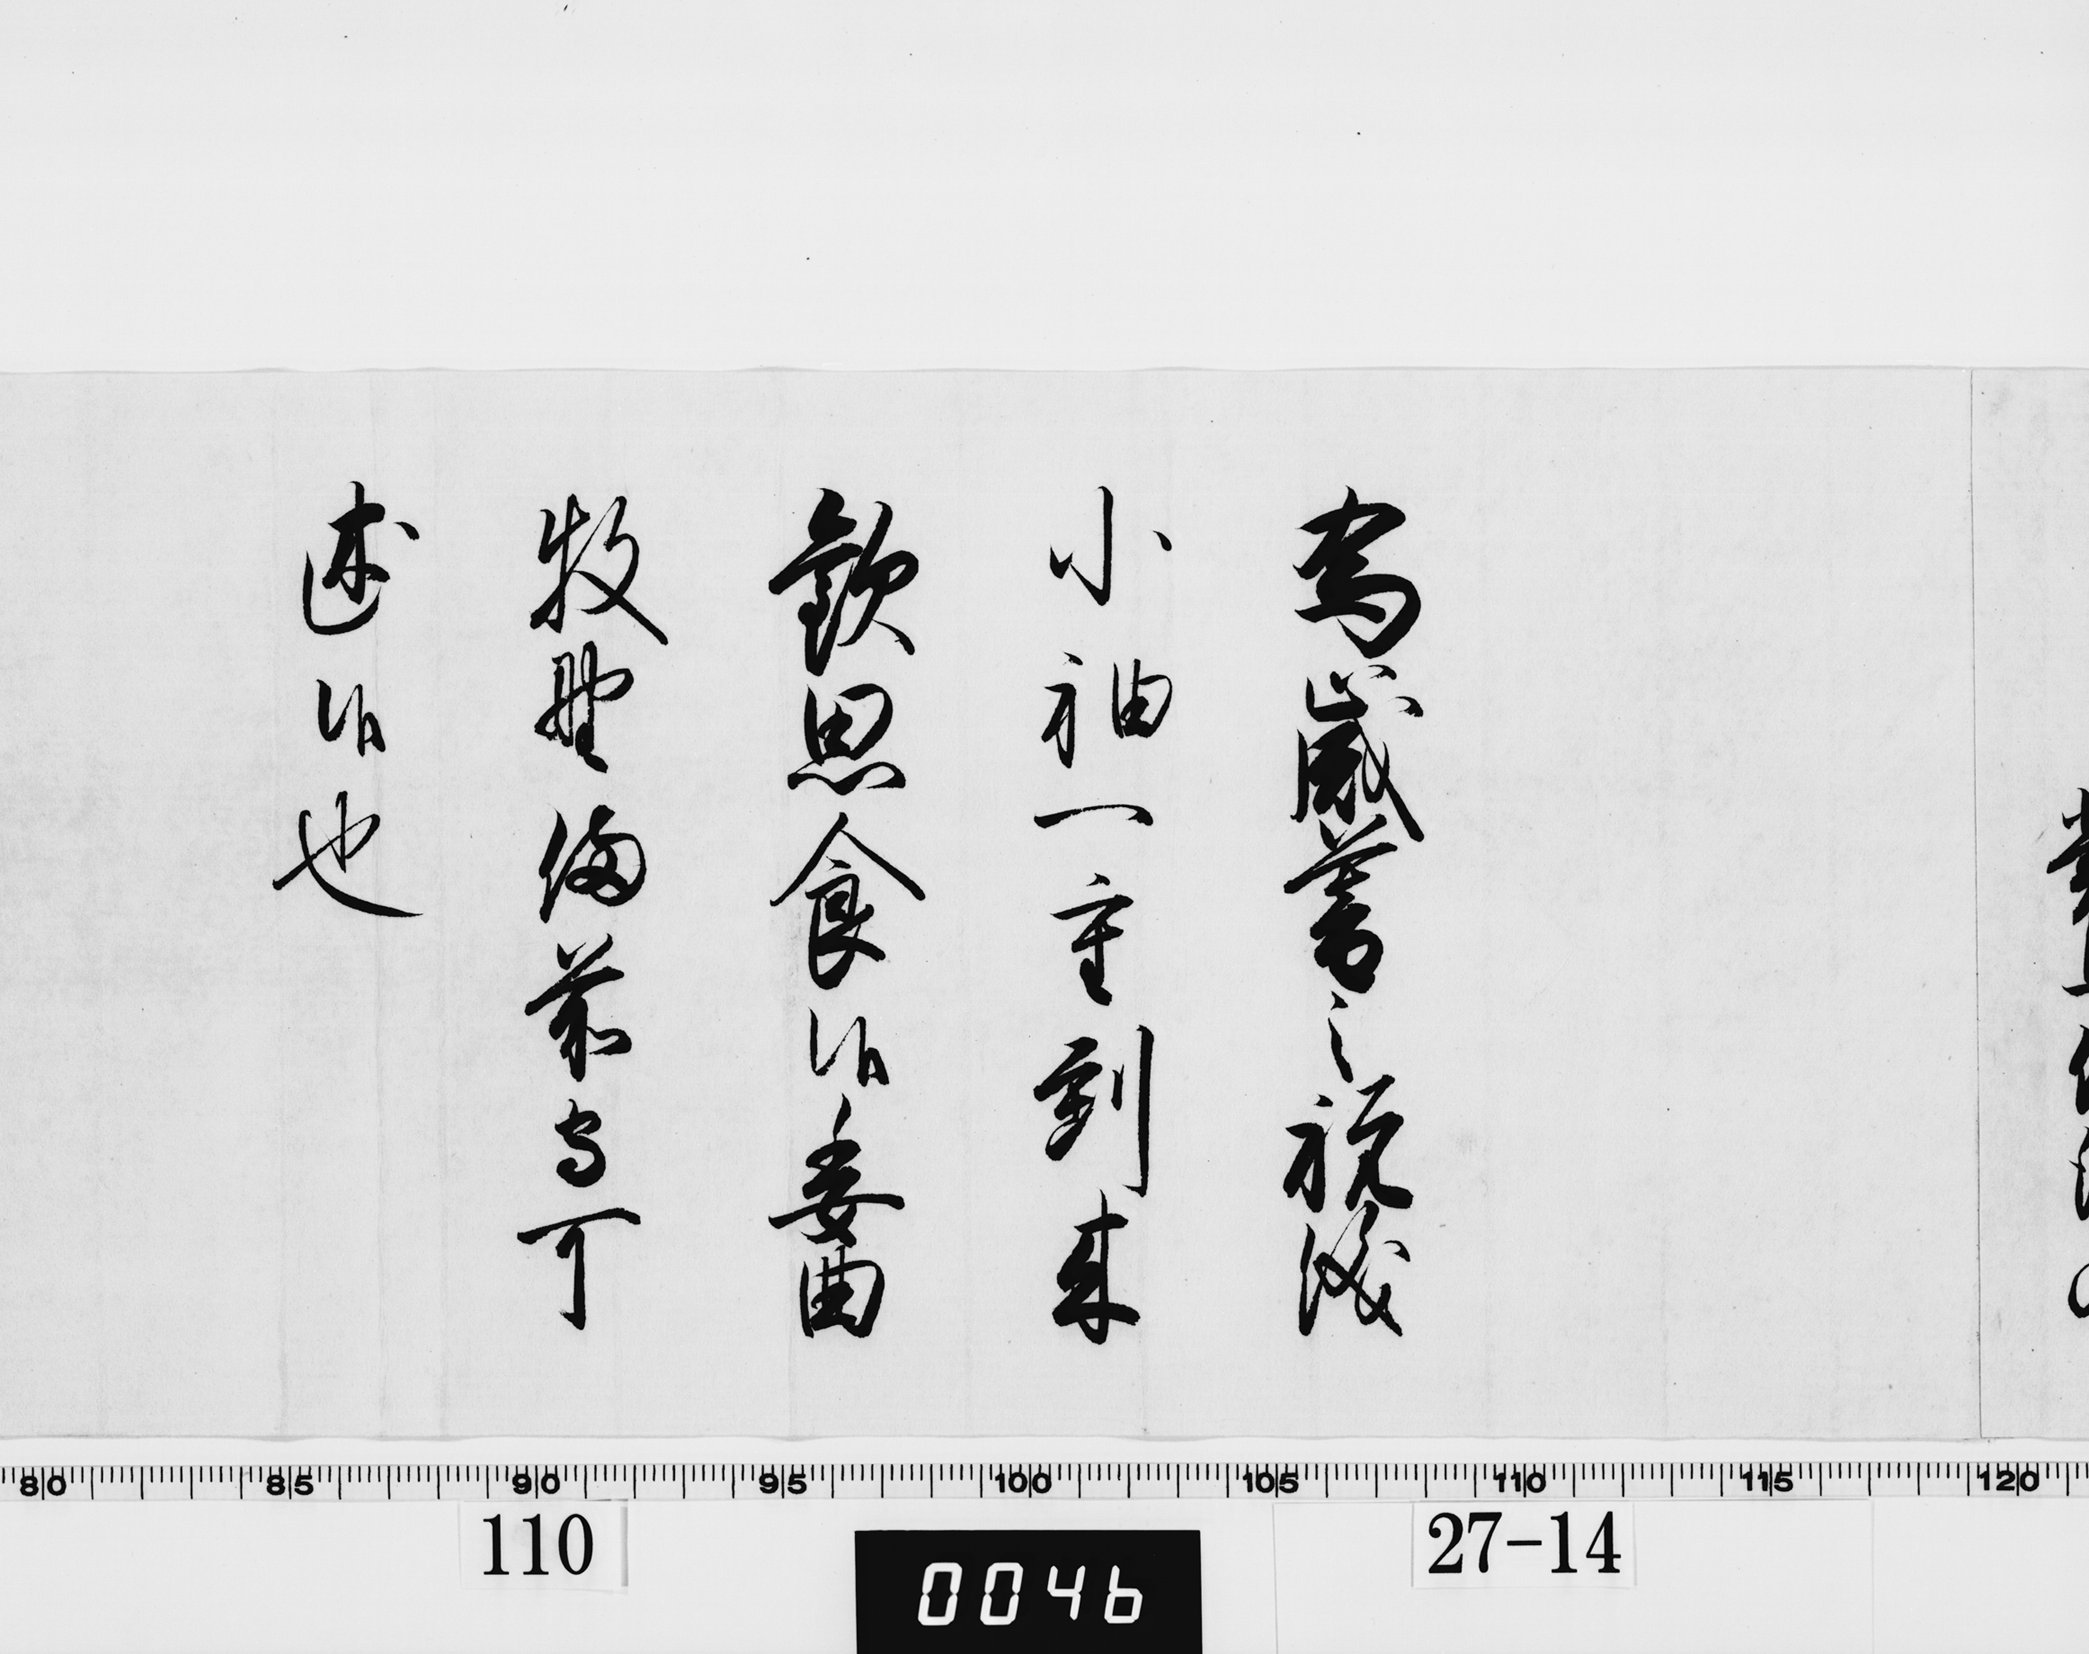 為歳暮之祝儀
小袖一重到来
歓思食候委曲
牧野備前守可
述候也
80 85 90 95 100 105 110 115 120
110
0046
27-14